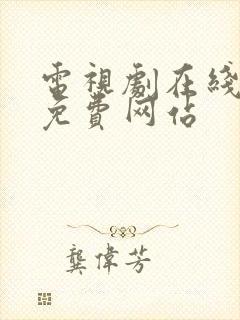 電視劇在綫
免費网站
龔偉芳